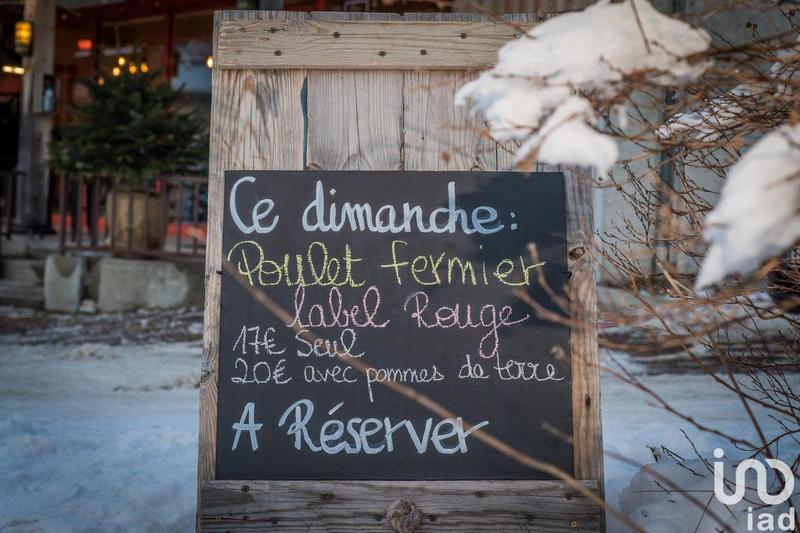 Ce dimanche:
Poulet fermier
label Rouge
17€ Seul
20€ avec pommes de terre
A Réserver
in
iad